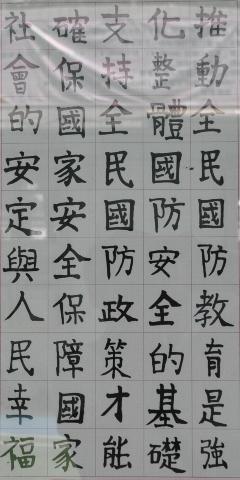 推動全民國防教育是強
化整體國防安全的基礎
支持全民國防政策才能
確保國家安全保障國家
社會的安定與人民幸福